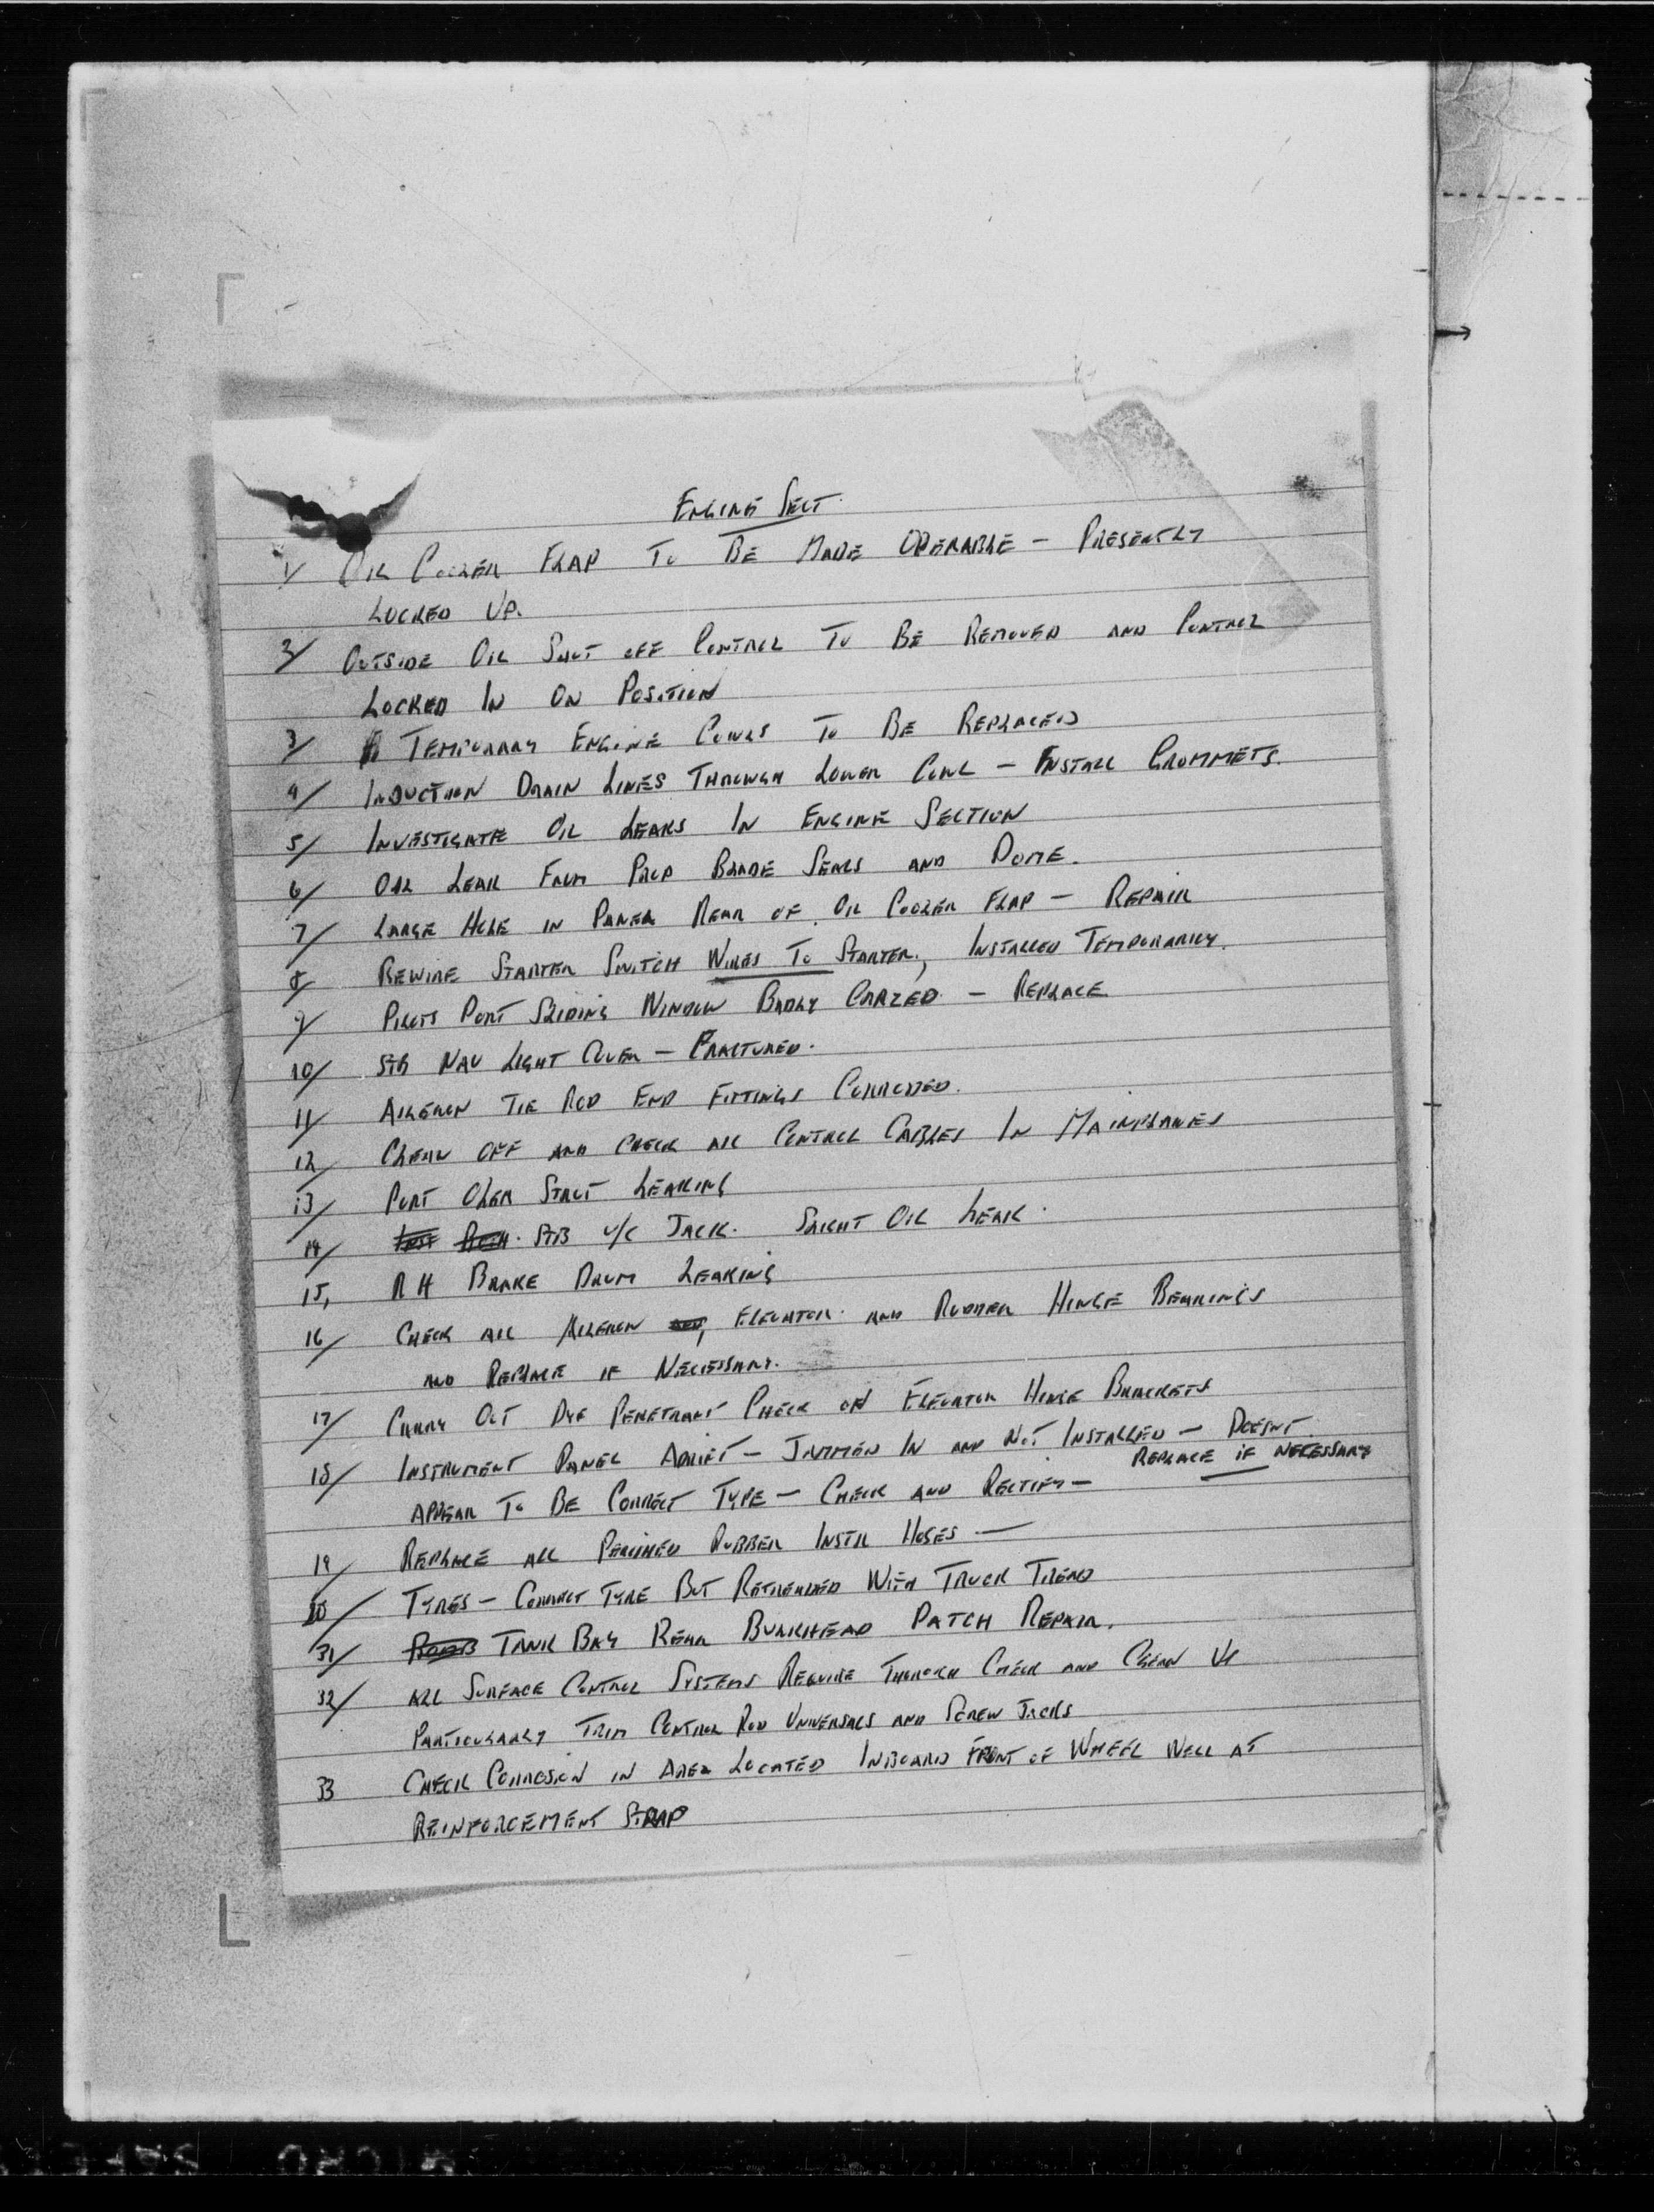 ENGINE SECT.
1/ OIL COOLER FLAP TO BE MADE OPERABLE — PRESENTLY
LOCKED UP.
2/ OUTSIDE OIL SHUT OFF CONTROL TO BE REMOVED AND CONTROL
LOCKED IN ON POSITION
3/ TEMPORARY ENGINE COWLS TO BE REPLACED
4/ INDUCTION DRAIN LINES THROUGH LOWER COWL — INSTALL GROMMETS.
5/ INVESTIGATE OIL LEAKS IN ENGINE SECTION
6/ OIL LEAK FROM PROP BLADE SEALS AND DOME.
7/ LARGE HOLE IN PANEL REAR OF OIL COOLER FLAP — REPAIR
8/ REWIRE STARTER SWITCH WIRES TO STARTER, INSTALLED TEMPORARILY.
9/ PILOTS PORT SLIDING WINDOW BADLY CRAZED — REPLACE
10/ STB NAV LIGHT COVER — FRACTURED.
11/ AILERON TIE ROD END FITTINGS CORRODED.
12/ CLEAN OFF AND CHECK ALL CONTROL CABLES IN MAINPLANES
13/ PORT OLEO STRUT LEAKING
14/ STB U/C JACK. SLIGHT OIL LEAK.
15, RH BRAKE DRUM LEAKING
16/ CHECK ALL AILERON, ELEVATOR AND RUDDER HINGE BEARINGS
AND REPLACE IF NECESSARY.
17/ CARRY OUT DYE PENETRANT CHECK ON ELEVATOR HINGE BRACKETS
18/ INSTRUMENT PANEL ADRIFT — JAMMED IN AND NOT INSTALLED — DOESNT
APPEAR TO BE CORRECT TYPE — CHECK AND RECTIFY — REPLACE IF NECESSARY
19/ REPLACE ALL PERISHED RUBBER INSTR HOSES —
20/ TYRES — CORRECT TYRE BUT RETREADED WITH TRUCK TREAD
31/ TANK BAY REAR BULKHEAD PATCH REPAIR.
32/ ALL SURFACE CONTROL SYSTEMS REQUIRE THOROUGH CHECK AND CLEAN UP
PARTICULARLY TRIM CONTROL ROD UNIVERSALS AND SCREW JACKS
33 CHECK CORROSION IN AREA LOCATED INBOARD FRONT OF WHEEL WELL AT
REINFORCEMENT STRAP